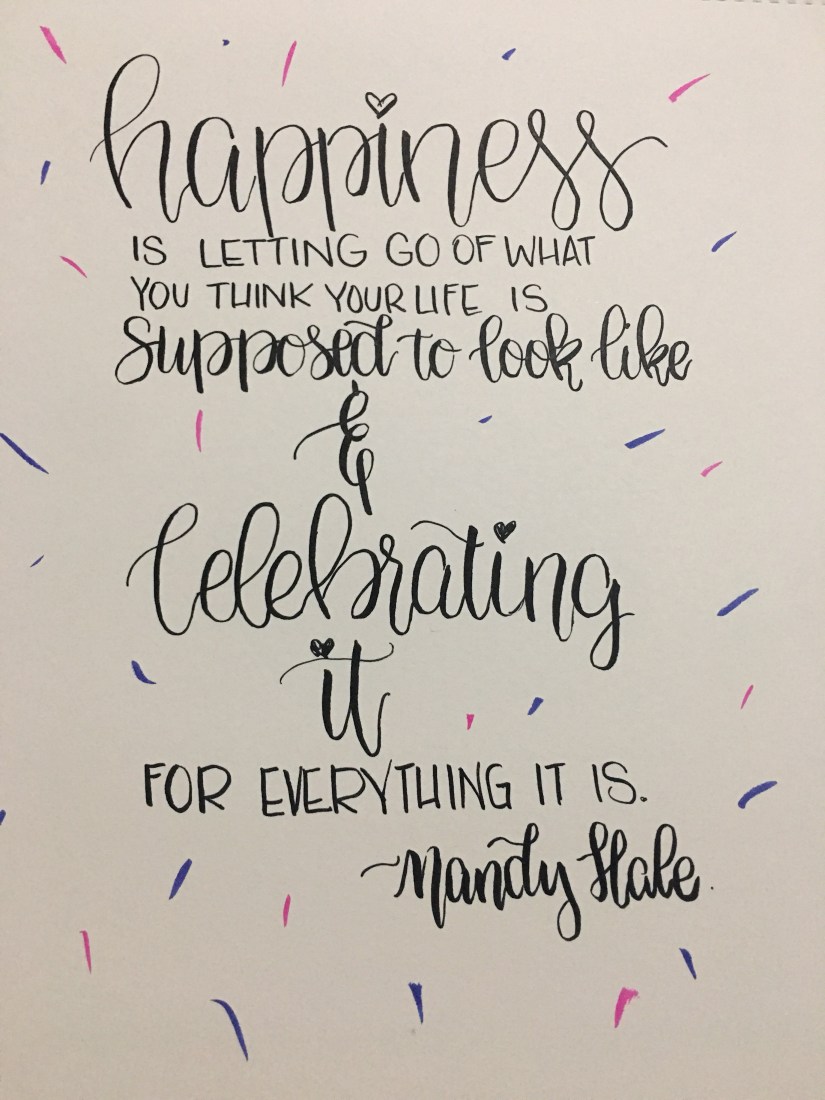 happiness
IS LETTING GO OF WHAT
YOU THINK YOUR LIFE IS
Supposed to look like
&
Celebrating
it
FOR EVERYTHING IT IS.
~Mandy Hale.